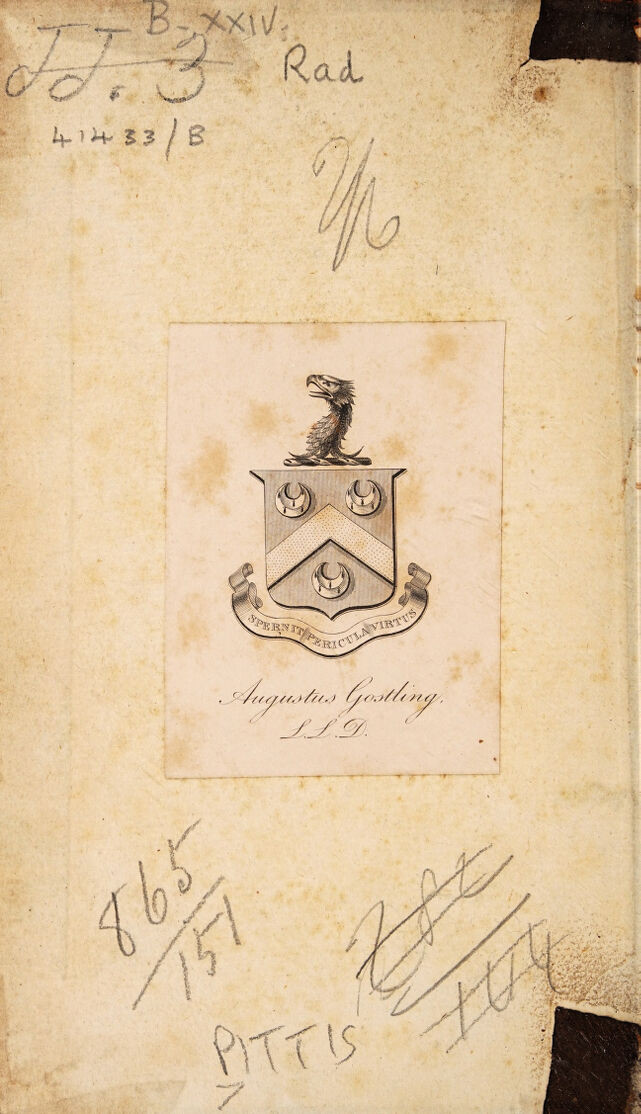 B-XXIV.
JJ.3
Rad
41433/B
SPERNIT PERICULA VIRTUS
Augustus Gostling,
L.L.D.
865/151
PITTIS